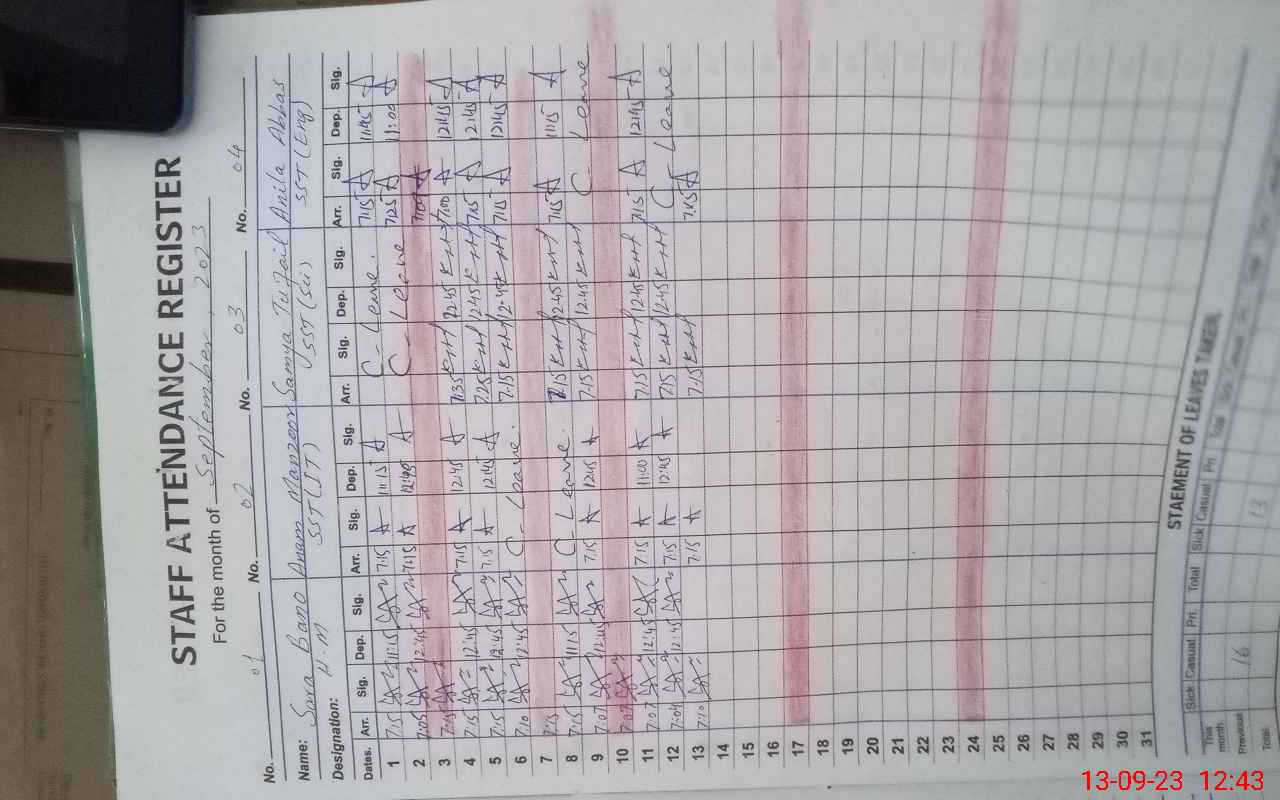 STAFF ATTENDANCE REGISTER
For the month of September, 2023
No. 01 No. 02 No. 03 No. 04
Name: Saira Bano Anam Manzoor Samya Tufail Anila Abbas
Designation: H.M SST (IT) SST (Sci) SST (Eng)
Dates. Arr. Sig. Dep. Sig. Arr. Sig. Dep. Sig. Arr. Sig. Dep. Sig. Arr. Sig. Dep. Sig.
1 7:15 11:15 7:15 11:15 C- Leave. 7:15 11:45
2 7:05 12:45 7:15 12:45 C- Leave 7:25 11:00
3
4 7:15 12:45 7:15 12:45 7:35 12:45 7:00 12:45
5 7:15 12:45 7:15 12:45 7:25 12:45 7:15 12:45
6 7:10 12:45 C- Leave. 7:15 12:45 7:15 12:45
7
8 7:15 11:15 C- Leave. 7:15 12:45 7:15 11:15
9 7:07 12:45 7:15 12:45 7:15 12:45 C- Leave
10 7:07
11 7:07 12:45 7:15 11:00 7:15 12:45 7:15 12:45
12 7:04 12:45 7:15 12:45 7:15 12:45 C- Leave
13 7:10 7:15 7:15 7:15
14
15
16
17
18
19
20
21
22
23
24
25
26
27
28
29
30
31
STAEMENT OF LEAVES TAKEN.
Sick Casual Pri. Total Sick Casual Pri Total
This month
Previous 16 13
Total
13-09-23 12:43